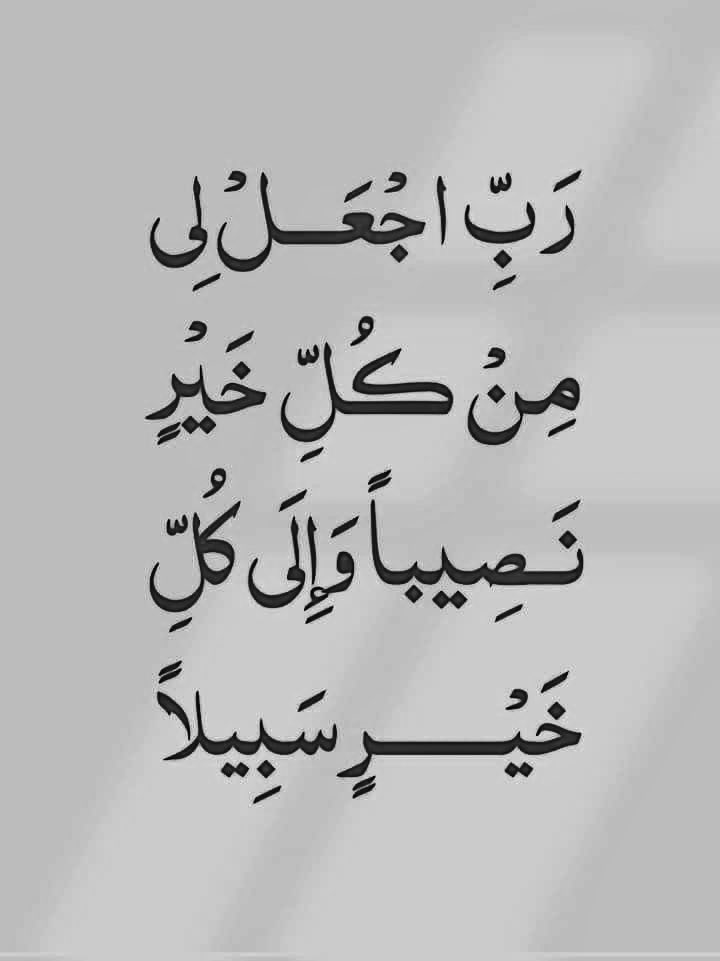 رَبِّ اجْعَـــلْ لِي
مِنْ كُلِّ خَيْرٍ
نَـصِيباً وَإِلَى كُلِّ
خَيْـــــرٍ سَبِيلاً